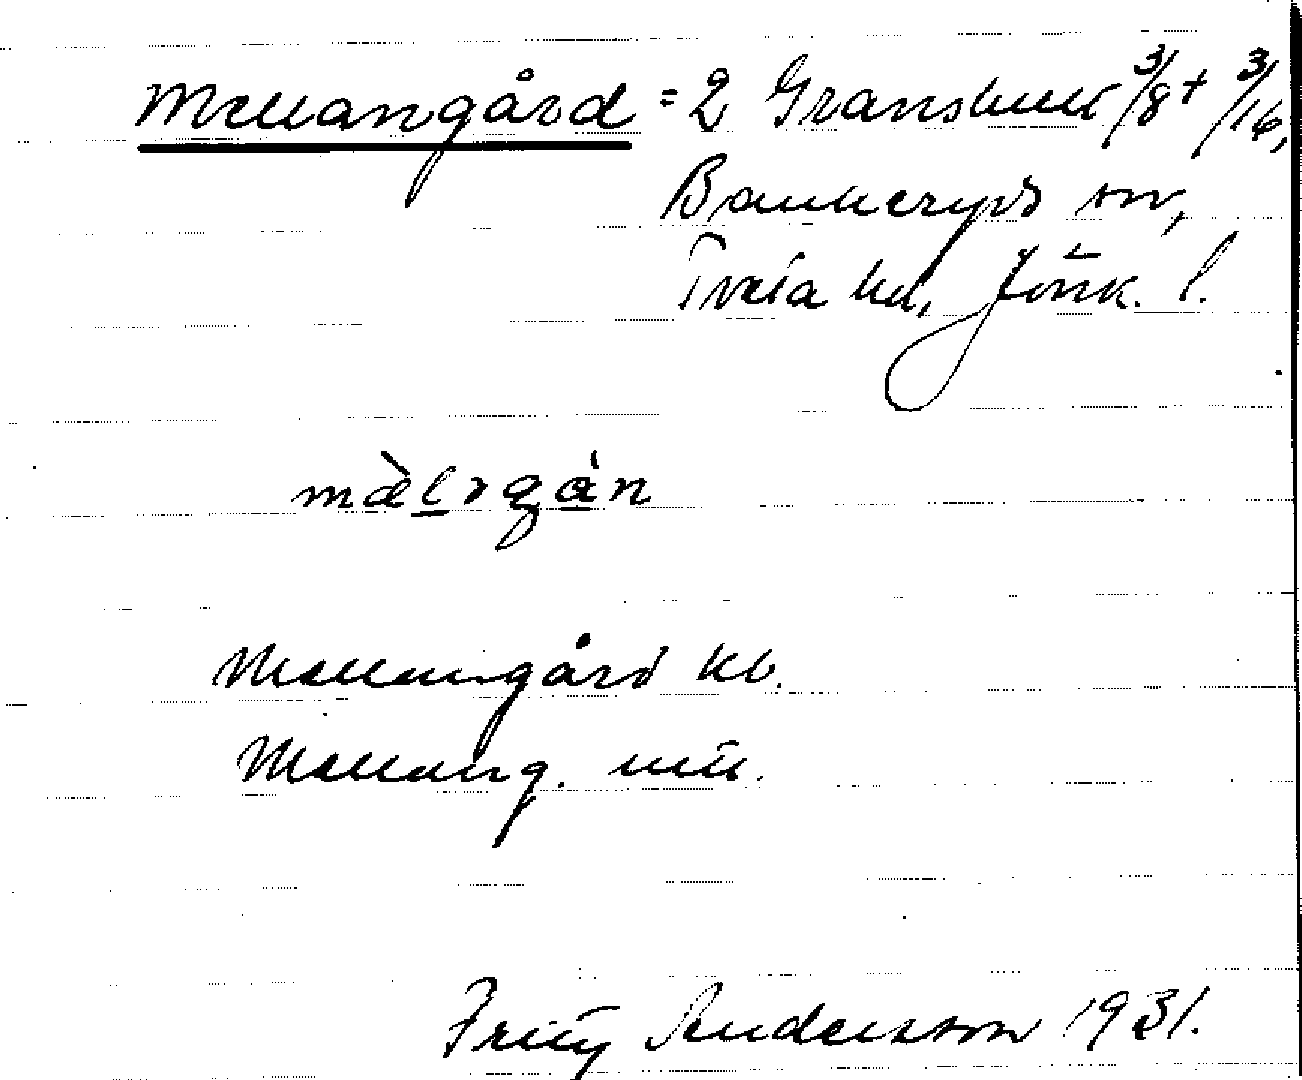 Mellangård = 2 Granshult 3/8 + 3/16,
Bankeryds sn,
Tveta hd, Jönk. l.
mæ̀lrgán
Mellangård kb.
Mellang. mtl.
Fritz Andersson 1931.